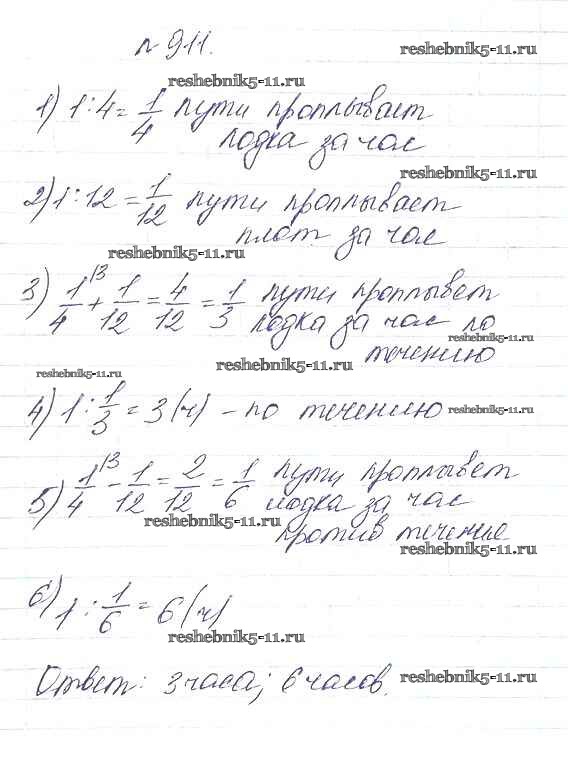 №911.
reshebnik5-11.ru
reshebnik5-11.ru
1) 1:4=1/4 пути проплывает
лодка за час
reshebnik5-11.ru
2) 1:12=1/12 пути проплывает
плот за час
reshebnik5-11.ru
3) 1/4 \3 + 1/12 = 4/12 = 1/3 пути проплывет
лодка за час по
reshebnik5-11.ru
течению
reshebnik5-11.ru
reshebnik5-11.ru
4) 1:1/3=3(ч) - по течению
reshebnik5-11.ru
5) 1/4 \3 - 1/12 = 2/12 = 1/6 пути проплывет
лодка за час
reshebnik5-11.ru
против течение
reshebnik5-11.ru
6) 1:1/6=6(ч)
reshebnik5-11.ru
Ответ: 3 часа; 6 часов.
reshebnik5-11.ru